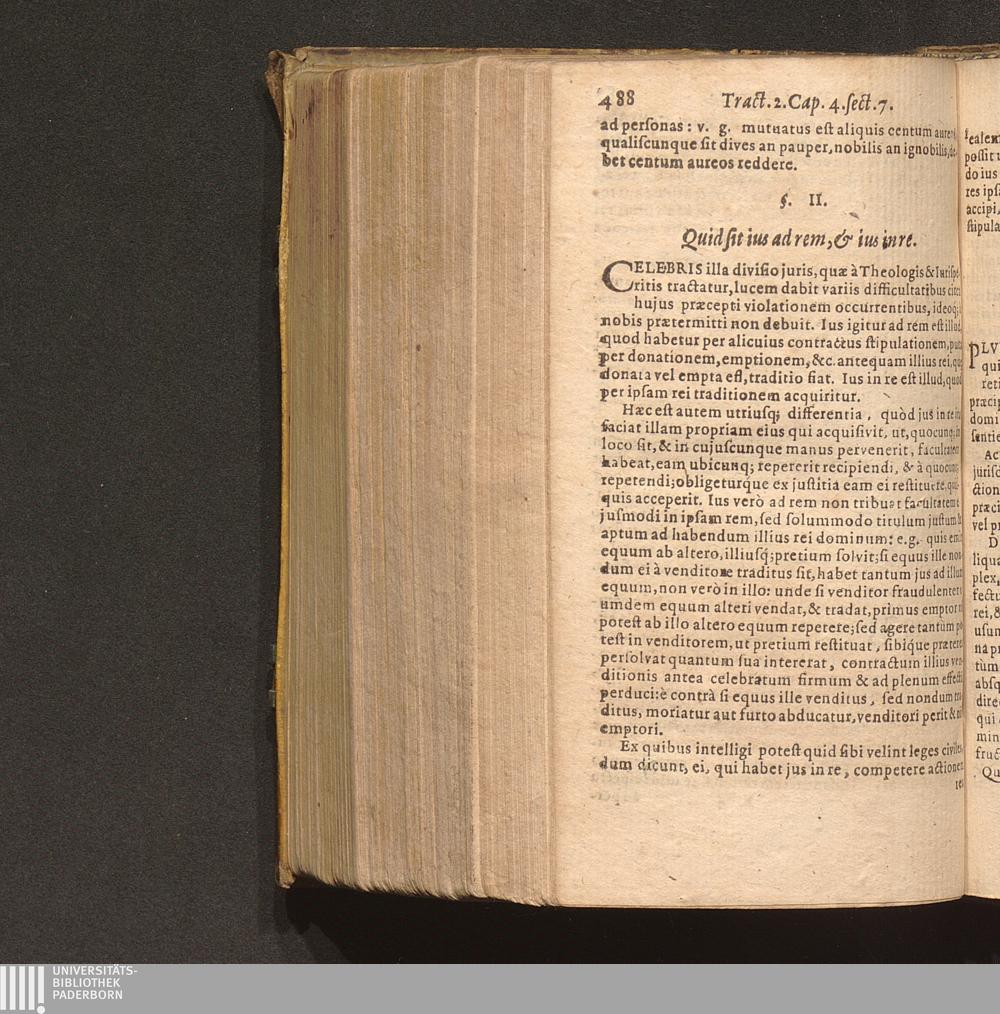 488 Tract. 2. Cap. 4. sect. 7.
ad personas: v. g. mutuatus est aliquis centum aureos
qualiscunque sit dives an pauper, nobilis an ignobilis, de-
bet centum aureos reddere.
§. II.
Quid sit ius ad rem, & ius in re.
CELEBRIS illa divisio juris, quæ à Theologis & Iurispe-
ritis tractatur, lucem dabit variis difficultatibus circa
hujus præcepti violationem occurrentibus, ideoq;
nobis prætermitti non debuit. Ius igitur ad rem est illud,
quod habetur per alicuius contractus stipulationem, puta
per donationem, emptionem, &c. antequam illius rei, quæ
donata vel empta est, traditio fiat. Ius in re est illud, quod
per ipsam rei traditionem acquiritur.
Hæc est autem utriusq; differentia, quòd jus in re
faciat illam propriam eius qui acquisivit, ut, quocunq; in
loco sit, & in cujuscunque manus pervenerit, facultatem
habeat, eam ubicunq; repererit recipiendi, & à quocunq;
repetendi; obligeturque ex justitia eam ei restituere, qui-
quis acceperit. Ius verò ad rem non tribuat facultatem
jusmodi in ipsam rem, sed solummodo titulum justum &
aptum ad habendum illius rei dominum: e.g. quis emit
equum ab altero, illiusq́; pretium solvit; si equus ille non-
dum ei à venditore traditus sit, habet tantum jus ad illum
equum, non verò in illo: unde si venditor fraudulenter
umdem equum alteri vendat, & tradat, primus emptor
potest ab illo altero equum repetere; sed agere tantùm po-
test in venditorem, ut pretium restituat, sibique præterea
persolvat quantum sua intererat, contractum illius ven-
ditionis antea celebratum firmum & ad plenum effectum
perduci: è contrà si equus ille venditus, sed nondum tra-
ditus, moriatur aut furto abducatur, venditori perit & non
emptori.
Ex quibus intelligi potest quid sibi velint leges civiles,
dum dicunt, ei, qui habet jus in re, competere actionem
do ius
accipi,
PLV
qui
præcip
domi
plex,
rei, &
usum
tùm
qui
Qu
UNIVERSITÄTS-
BIBLIOTHEK
PADERBORN